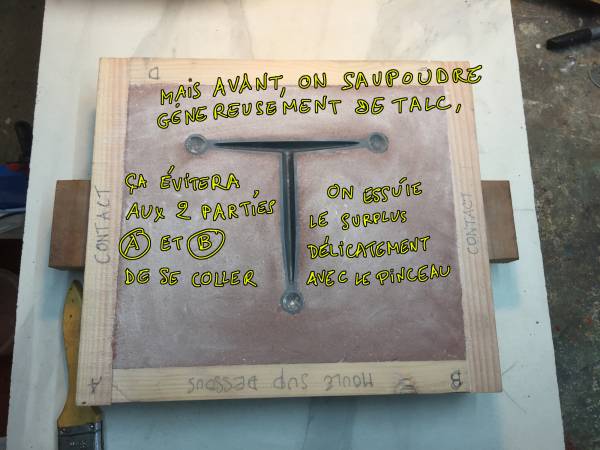 MAIS AVANT, ON SAUPOUDRE
GÉNEREUSEMENT DE TALC,
ÇA ÉVITERA,
AUX 2 PARTIES
A ET B
DE SE COLLER
ON ESSUIE
LE SURPLUS
DÉLICATEMENT
AVEC LE PINCEAU
CONTACT
CONTACT
D
A
B
MOULE SUP DESSOUS